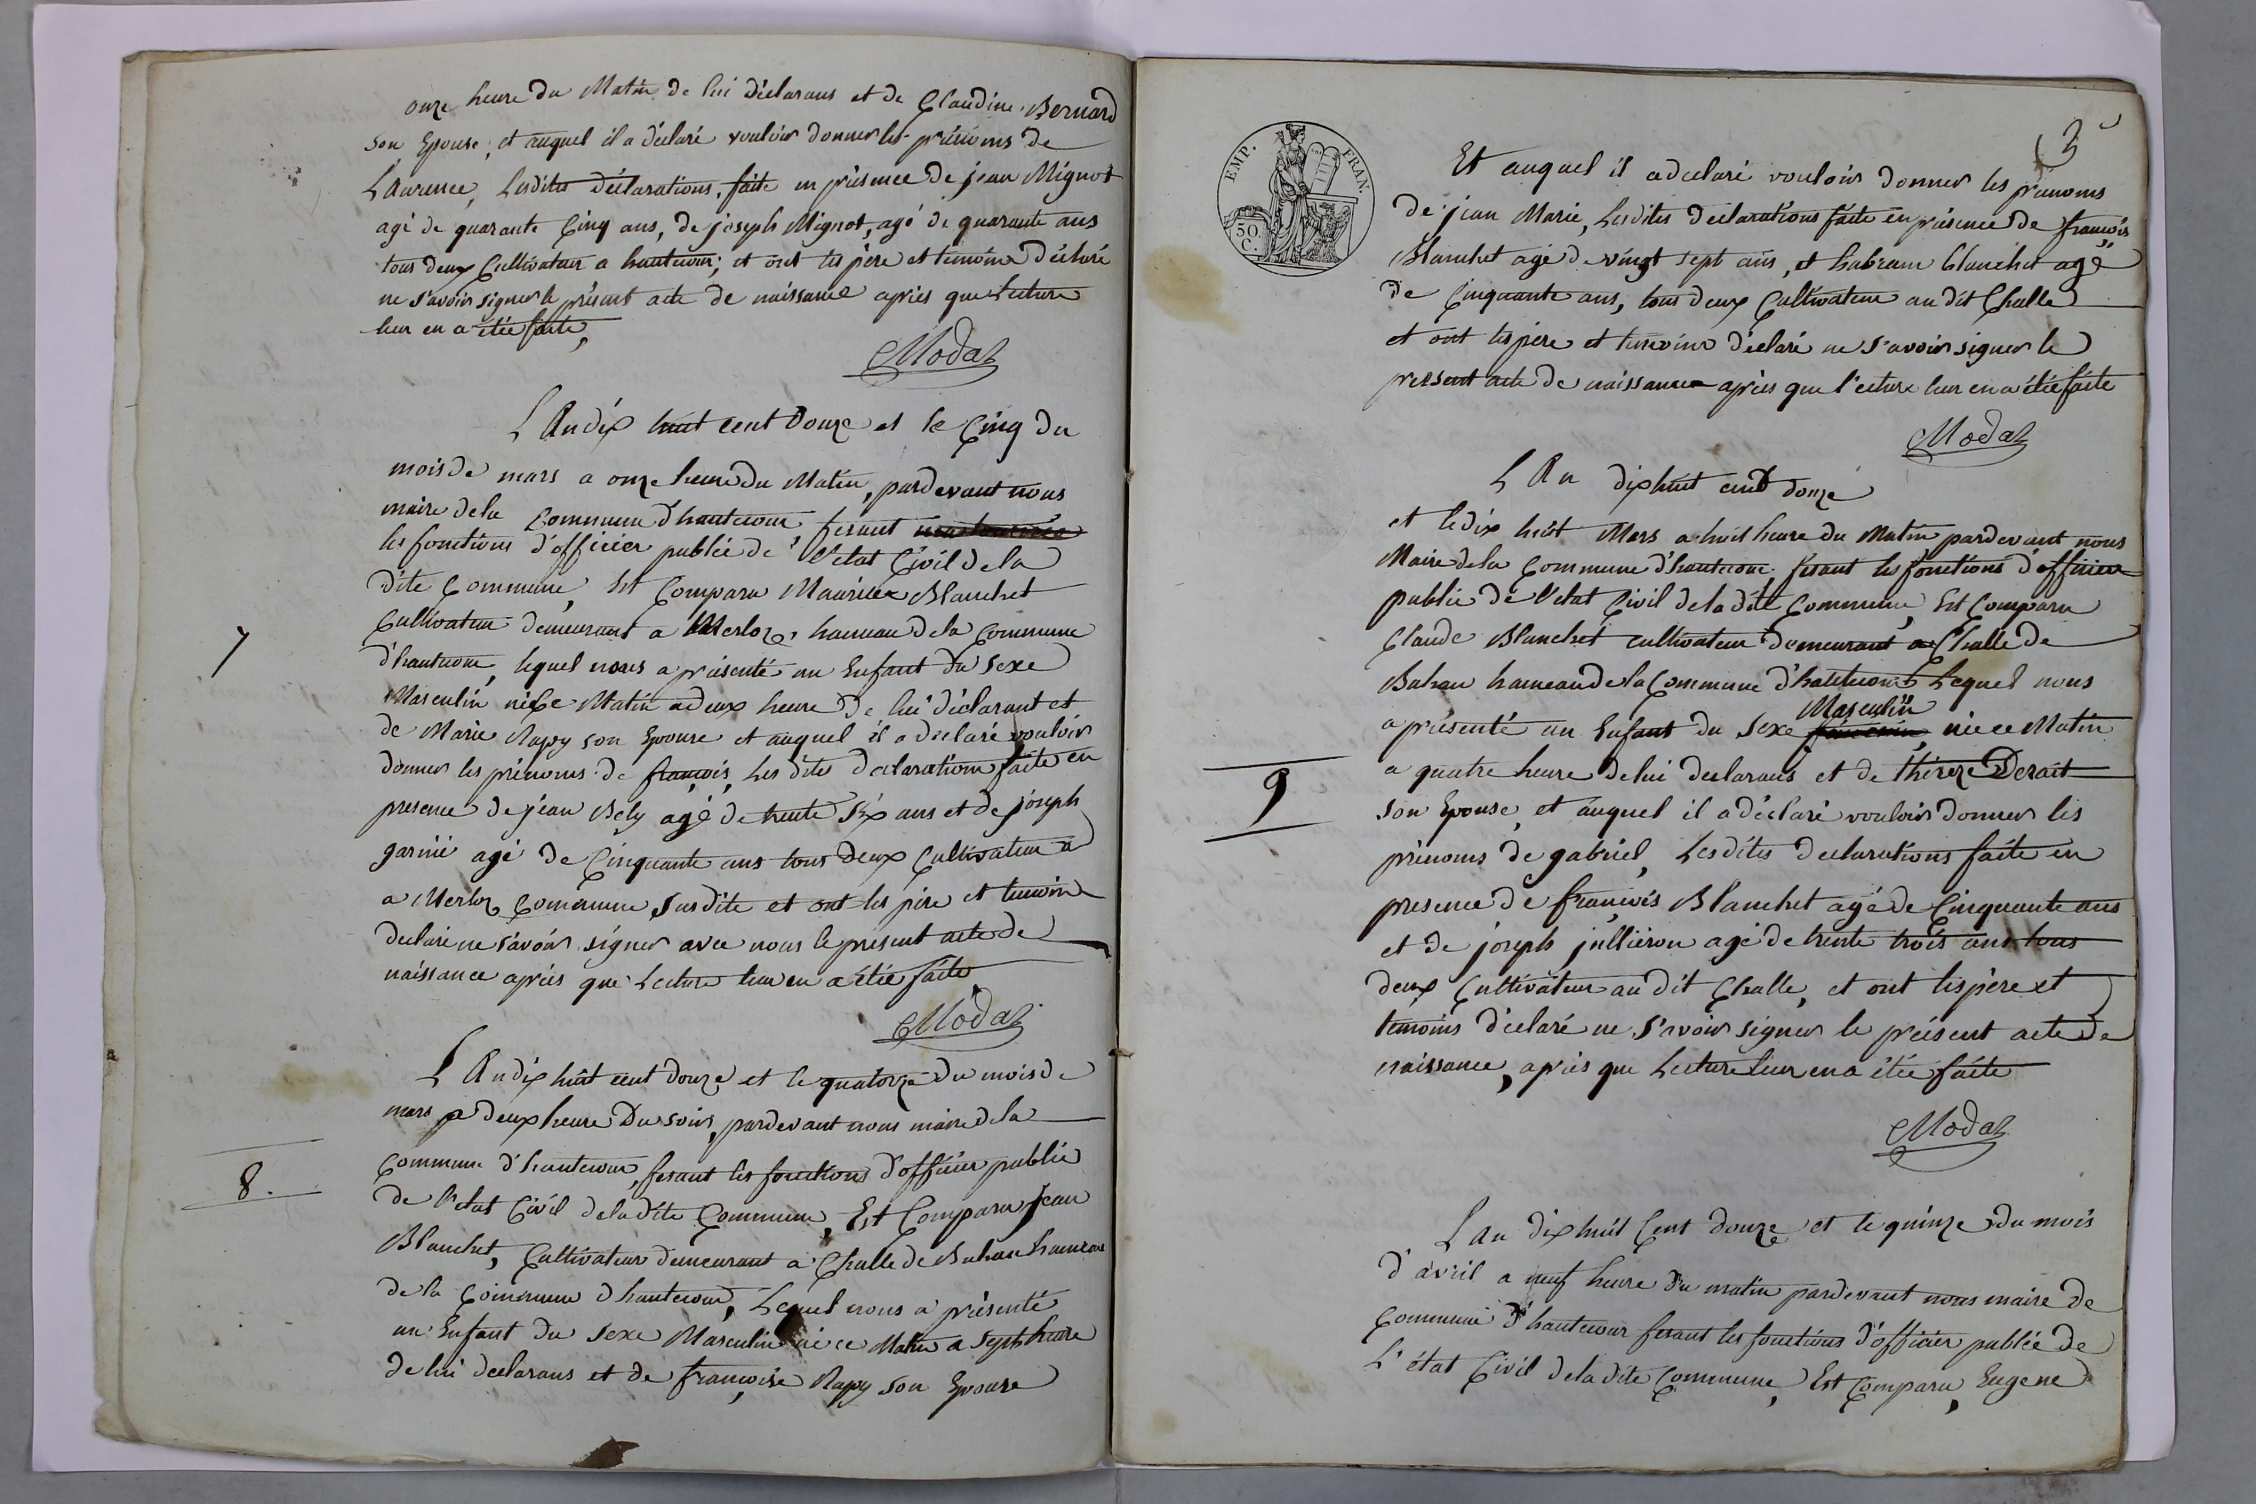 onze heure du Matin de lui déclarans et de Claudine Bernard
son Epouse, et auquel il a déclaré vouloir donner les prénoms de
Laurence, Lesdites déclarations, faite en présence de jean Mignot
agé de quarante Cinq ans, de joseph Mignot, agé de quarante ans
tous deux Cultivateur a hautecour; et ont les père et témoins déclaré
ne s'avoir signer le présent acte de naissance après que Lecture
leur en a étée faite,
Modaz
L'An dix huit cent douze et le Cinq du
mois de mars a onze heure du Matin, pardevant nous
maire dela Commune d'hautecour fesant
les fonctions d'officier publié de l'etat Civil dela
dite Commune, Est Comparu Maurice Blanchet
Cultivateur demeurant a Merloz, hameau dela Commune
d'hautecour, lequel nous a présenté un Enfant du sexe
7
Masculin né Ce Matin a deux heure de lui déclarant et
de Marie Rapy son Epouse et auquel il a déclaré vouloir
donner les prénoms de françois, Les dites déclarations faite en
presence de jean Bely agé de trente Six ans et de joseph
garnié agé de Cinquante ans tous deux Cultivateur a
a Merloz Commune Susdite et ont les père et temoins
declaré ne s'avoir signer avec nous le present acte de
naissance après que Lecture leur en a étée faite
Modaz
L'An dix huit cent douze et le quatorze du mois de
mars a deux heure Du soir, pardevant nous maire dela
Commune d'hautecour, fesant les fonctions d'officier publié
8.
de l'etat Civil dela dite Commune, Est Comparu Jean
Blanchet, Cultivateur demeurant a Challe de Bahau hameau
de la Commune d'hautecour, Lequel nous a présenté
un Enfant du Sexe Masculin né ce Matin a Sept heure
de lui declarans et de françoise Rapy son Epouse
EMP. FRAN.
50 C.
3
Et auquel il a declaré vouloir donner les prenoms
de jean Marie, Lesdites déclarations faite en présence de françois
Blanchet agé de vingt sept ans, et habram blanchet agé
de Cinquante ans, tous deux Cultivateur au dit Challe
et ont les père et temoins déclaré ne s'avoir signer le
present acte de naissance après que l'ecture leur en a étée faite
Modaz
L'An dix huit cent douze
et le dix huit Mars a huit heure du Matin pardevant nous
Maire dela Commune d'hautecour, fesant les fonctions d'officier
publié de l'etat Civil dela dite Commune, Est Comparu
Claude Blanchet cultivateur demeurant a Challe de
Bahau hameau de la Commune d'hautecour Lequel nous
Masculin
a présenté un Enfant du Sexe feminin, née ce Matin
9
a quatre heure de lui declarans et de thérèze Derait
son Epouse, et auquel il a déclaré vouloir donner les
prénoms de gabriel, Lesdites declarations faite en
presence de françois Blanchet agé de Cinquante ans
et de joseph jullieron agé de trente trois ans tous
deux Cultivateur au dit Challe, et ont les père et
temoins déclaré ne s'avoir signer le présent acte de
naissance, après que Lecture leur en a étée faite
Modaz
L'an dix huit Cent douze et le quinze du mois
d'avril a neuf heure du matin pardevant nous maire de
Commune d'hautecour fesant les fonctions d'officier publié de
L'état Civil dela dite Commune, Est Comparu, Eugene